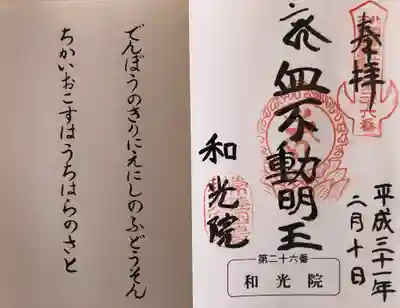 奉拝
平成三十一年
二月十日
血不動明王
和光院
第二十六番
和光院
でんぼうのきりにえにしのふどうそん
ちかいおこすはうちはらのさと